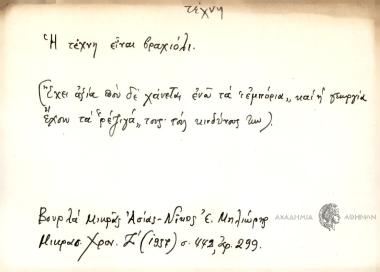 τέχνη
Ἡ τέχνη εἶναι βραχιόλι.
(Ἔχει ἀξία ποὺ δὲ χάνεται ἐνῶ τὰ "ἐμπόρια" καὶ ἡ γεωργία
ἔχουν τὰ "ρέζιγά" τους τοὺς κινδύνους των).
Βουρλά Μικρᾶς Ἀσίας - Νῖκος Ἐ. Μηλιώρης
Μικρασ. Χρον. Ζ' (1957) σ. 442, ἀρ. 299.
ΑΚΑΔΗΜΙΑ ΑΘΗΝΩΝ